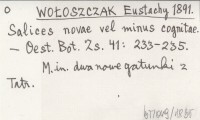 O WOŁOSZCZAK Eustachy 1891.
Salices novae vel minus cognitae.
— Oest. Bot. Zs. 41: 233-235.
M.in. dwa nowe gatunki z
Tatr.